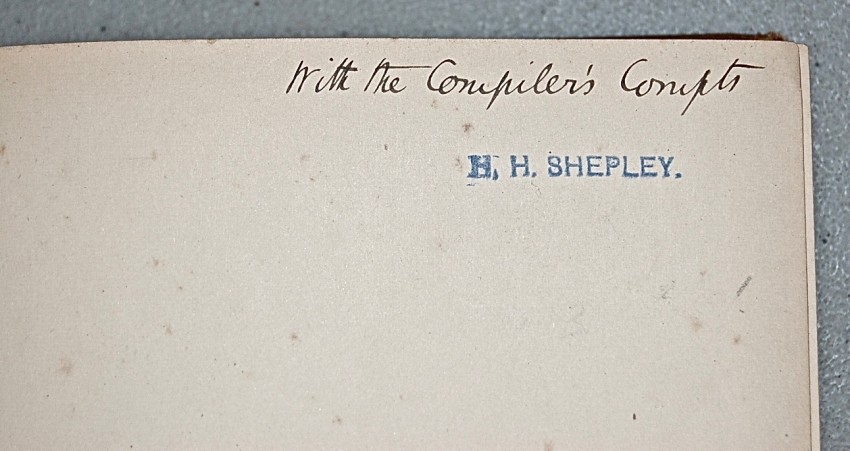 With the Compiler's Compts
H. H. SHEPLEY.